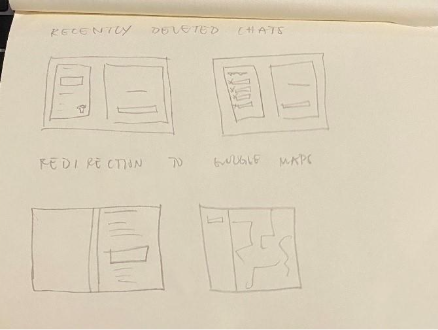 RECENTLY DELETED CHATS
REDIRECTION TO GOOGLE MAPS